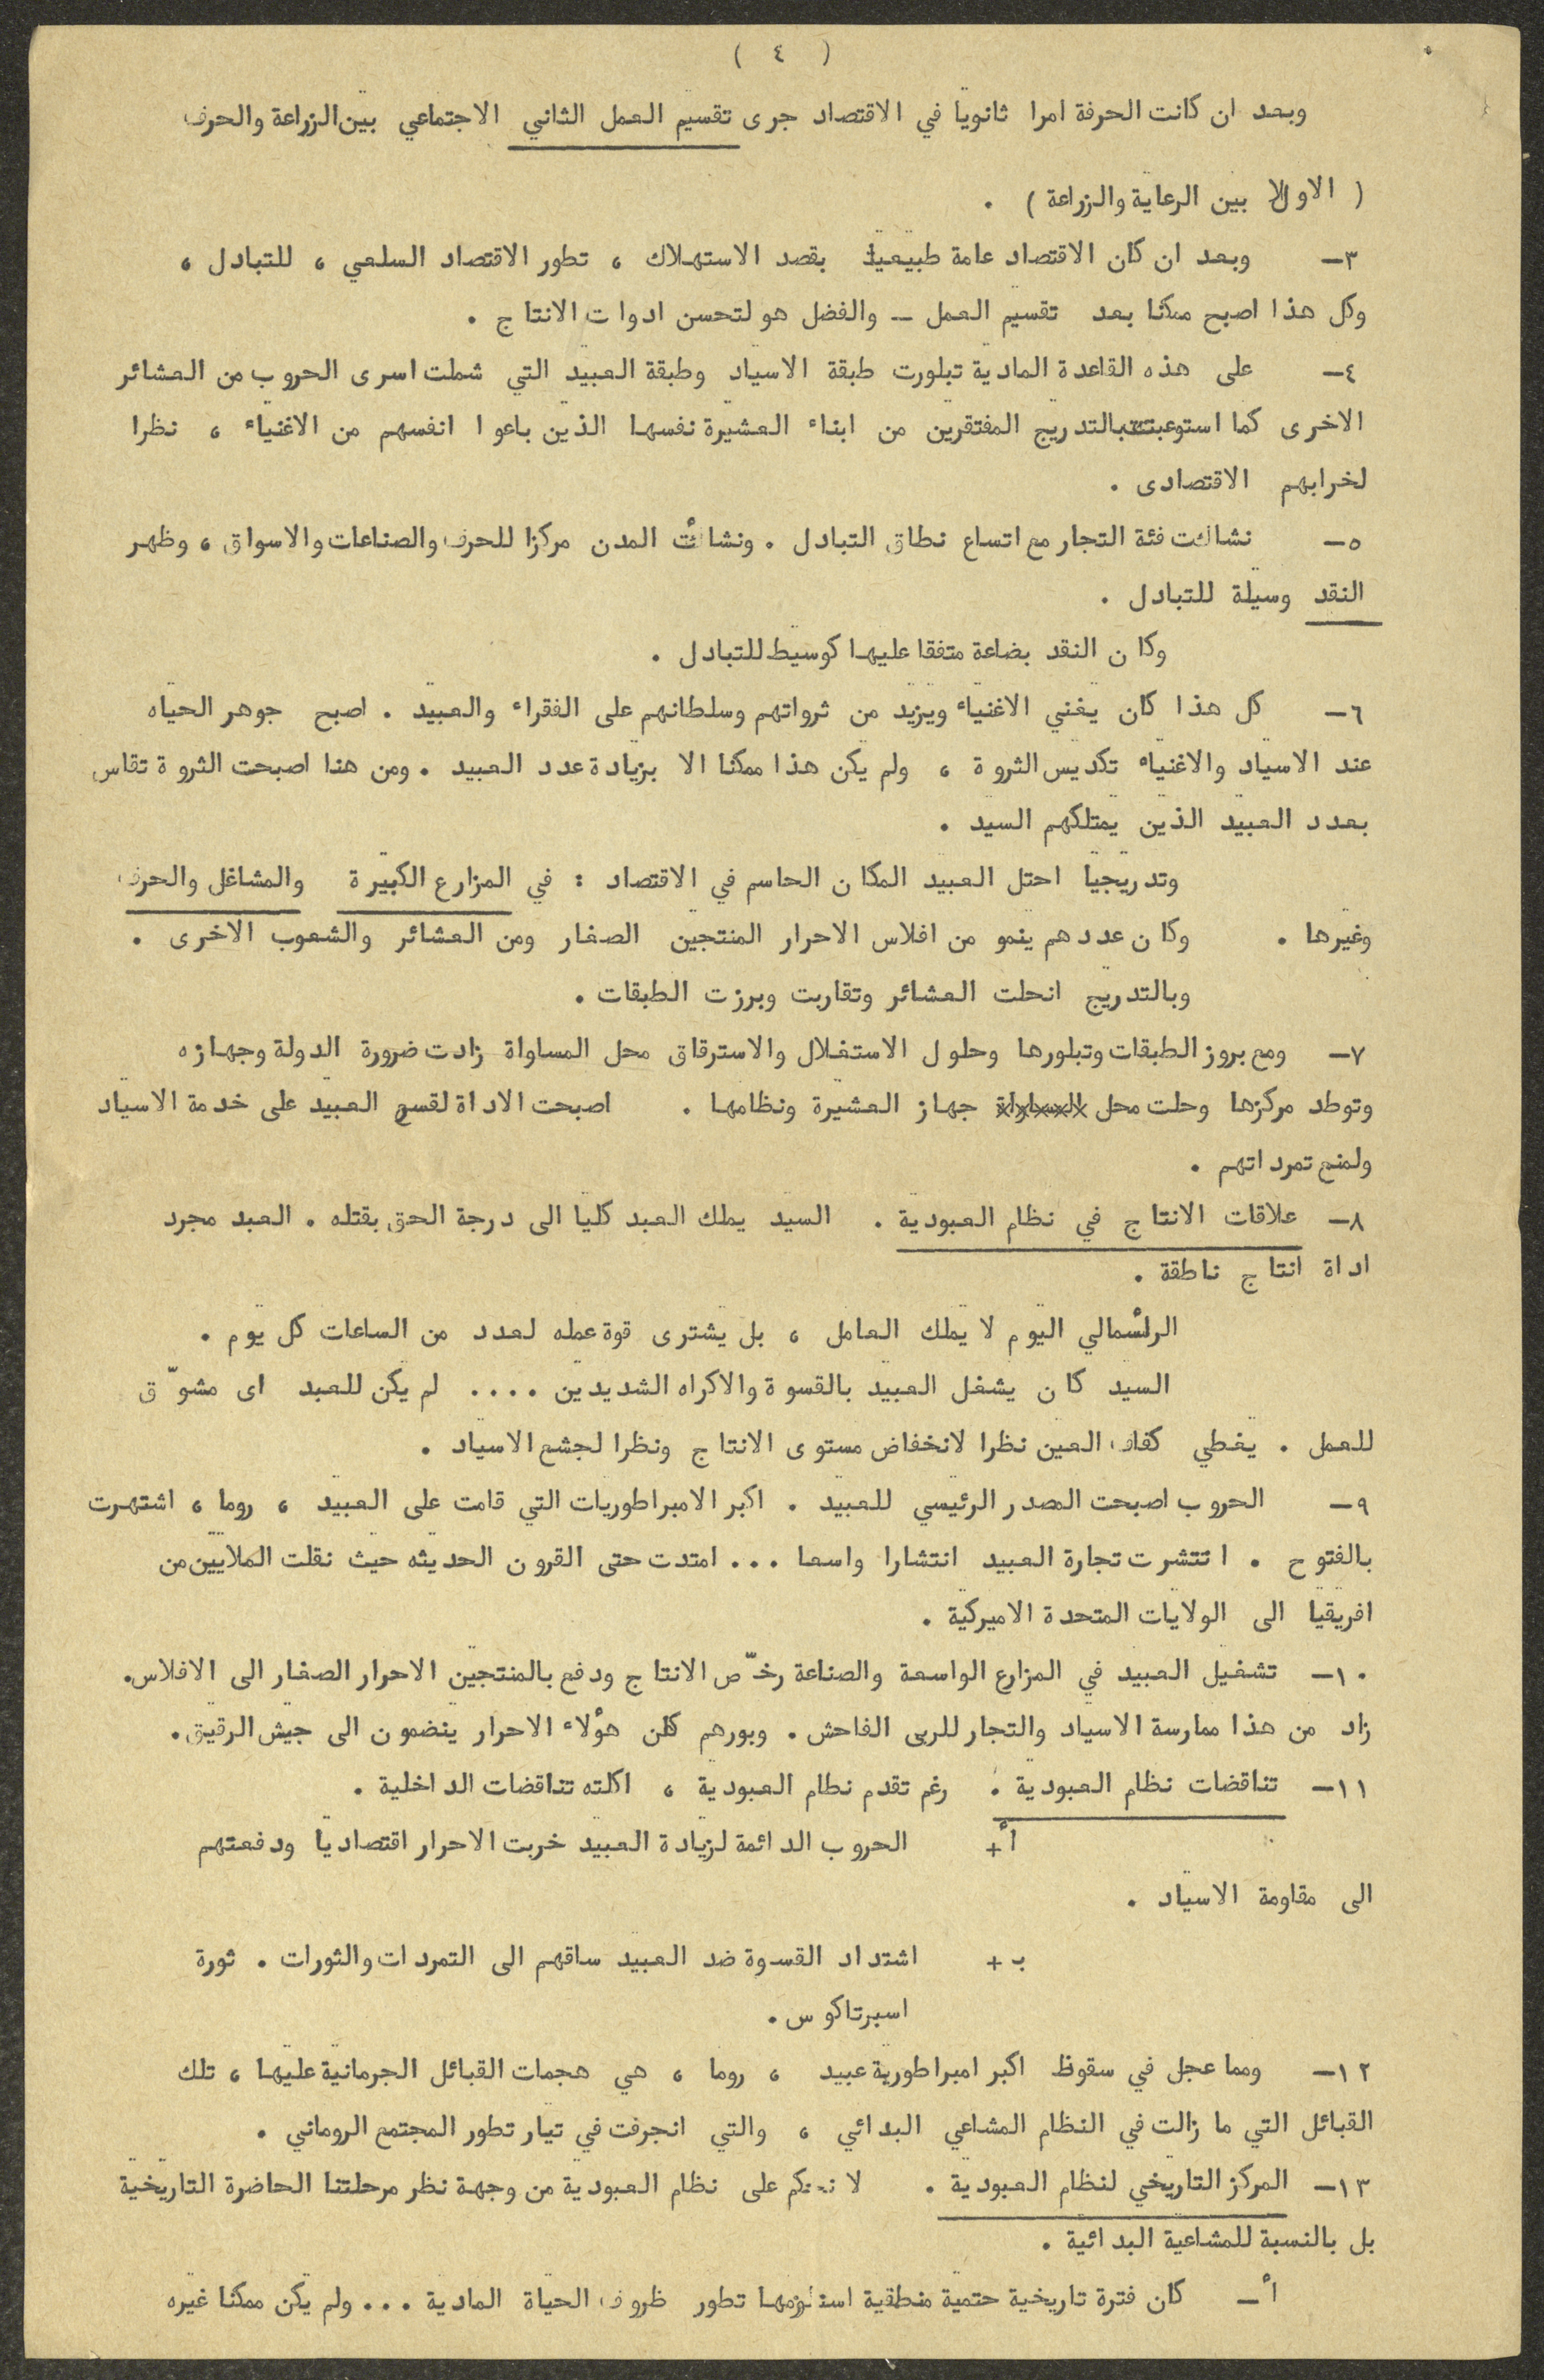 ( ٤ )
وبعد ان كانت الحرفة امرا ثانويا في الاقتصاد جرى تقسيم العمل الثاني الاجتماعي بين الزراعة والحرف
( الاول بين الرعاية والزراعة ) .
٣ــ وبعد ان كان الاقتصاد عامة طبيعيا بقصد الاستهلاك ، تطور الاقتصاد السلعي ، للتبادل ،
وكل هذا اصبح ممكنا بعد تقسيم العمل ــ والفضل هو لتحسن ادوات الانتاج .
٤ــ على هذه القاعدة المادية تبلورت طبقة الاسياد وطبقة العبيد التي شملت اسرى الحروب من العشائر
الاخرى كما استوعبت بالتدريج المفتقرين من ابناء العشيرة نفسها الذين باعوا انفسهم من الاغنياء ، نظرا
لخرابهم الاقتصادى .
٥ــ نشات فئة التجار مع اتساع نطاق التبادل . ونشأت المدن مركزا للحرف والصناعات والاسواق ، وظهر
النقد وسيلة للتبادل .
وكان النقد بضاعة متفقا عليها كوسيط للتبادل .
٦ــ كل هذا كان يغني الاغنياء ويزيد من ثرواتهم وسلطانهم على الفقراء والعبيد . اصبح جوهر الحياه
عند الاسياد والاغنياء تكديس الثروة ، ولم يكن هذا ممكنا الا بزيادة عدد العبيد . ومن هنا اصبحت الثروة تقاس
بعدد العبيد الذين يمتلكهم السيد .
وتدريجيا احتل العبيد المكان الحاسم في الاقتصاد : في المزارع الكبيرة والمشاغل والحرف
وغيرها . وكان عددهم ينمو من افلاس الاحرار المنتجين الصغار ومن العشائر والشعوب الاخرى .
وبالتدريج انحلت العشائر وتقاربت وبرزت الطبقات .
٧ــ ومع بروز الطبقات وتبلورها وحلول الاستغلال والاسترقاق محل المساواة زادت ضرورة الدولة وجهازه
وتوطد مركزها وحلت محل المساواة جهاز العشيرة ونظامها . اصبحت الاداة لقسر العبيد على خدمة الاسياد
ولمنع تمرداتهم .
٨ــ علاقات الانتاج في نظام العبودية . السيد يملك العبد كليا الى درجة الحق بقتله . العبد مجرد
اداة انتاج ناطقة .
الرأسمالي اليوم لا يملك العامل ، بل يشترى قوة عمله لعدد من الساعات كل يوم .
السيد كان يشغل العبيد بالقسوة والاكراه الشديدين .... لم يكن للعبد اى مشوّق
للعمل . يغطي كفاف العين نظرا لانخفاض مستوى الانتاج ونظرا لجشع الاسياد .
٩ــ الحروب اصبحت المصدر الرئيسي للعبيد . اكبر الامبراطوريات التي قامت على العبيد ، روما ، اشتهرت
بالفتوح . انتشرت تجارة العبيد انتشارا واسعا ... امتدت حتى القرون الحديثه حيث نقلت الملايين من
افريقيا الى الولايات المتحدة الاميركية .
١٠ــ تشغيل العبيد في المزارع الواسعة والصناعة رخّص الانتاج ودفع بالمنتجين الاحرار الصغار الى الافلاس.
زاد من هذا ممارسة الاسياد والتجار للربى الفاحش . وبورهم كلن هؤلاء الاحرار ينضمون الى جيش الرقيق.
١١ــ تناقضات نظام العبودية . رغم تقدم نطام العبودية ، اكلته تناقضات الداخلية .
أ+ الحروب الدائمة لزيادة العبيد خربت الاحرار اقتصاديا ودفعتهم
الى مقاومة الاسياد .
ب+ اشتداد القسوة ضد العبيد ساقهم الى التمردات والثورات . ثورة
اسبرتاكوس.
١٢ــ ومما عجل في سقوظ اكبر امبراطورية عبيد ، روما ، هي هجمات القبائل الجرمانية عليها ، تلك
القبائل التي ما زالت في النظام المشاعي البدائي ، والتي انجرفت في تيار تطور المجتمع الروماني .
١٣ــ المركز التاريخي لنظام العبودية . لا نحكم على نظام العبودية من وجهة نظر مرحلتنا الحاضرة التاريخية
بل بالنسبة للمشاعية البدائية .
أــ كان فترة تاريخية حتمية منطقية استلزمها تطور ظروف الحياة المادية ... ولم يكن ممكنا غيره